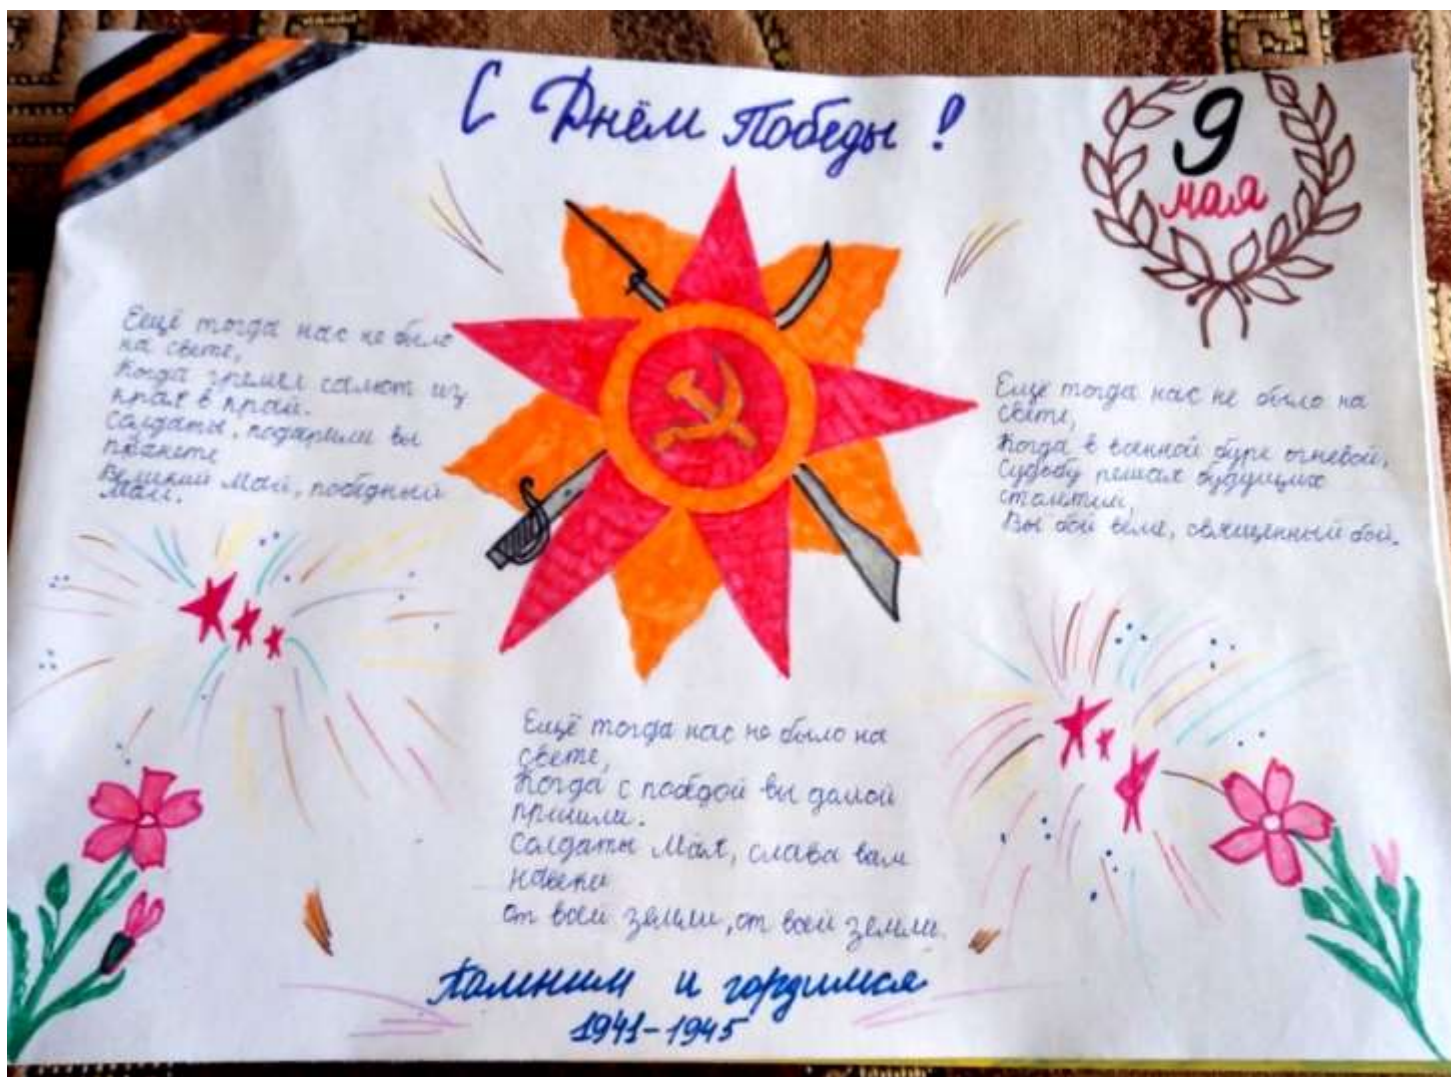 С Днём Победы!
9
мая
Еещё тогда нас не было
на свете,
Когда гремел салют из
края в край.
Солдаты, подарили вы
планете
Великий Май, победный
Май.
Ещё тогда нас не было на
свете,
Когда в военной буре огневой,
Судьбу решая будущих
столетий,
Вы бой вели, священный бой.
Ещё тогда нас не было на
свете,
Когда с победой вы домой
пришли.
Солдаты Мая, слава вам
навеки
от всей земли, от всей земли.
Помним и гордимся
1941-1945